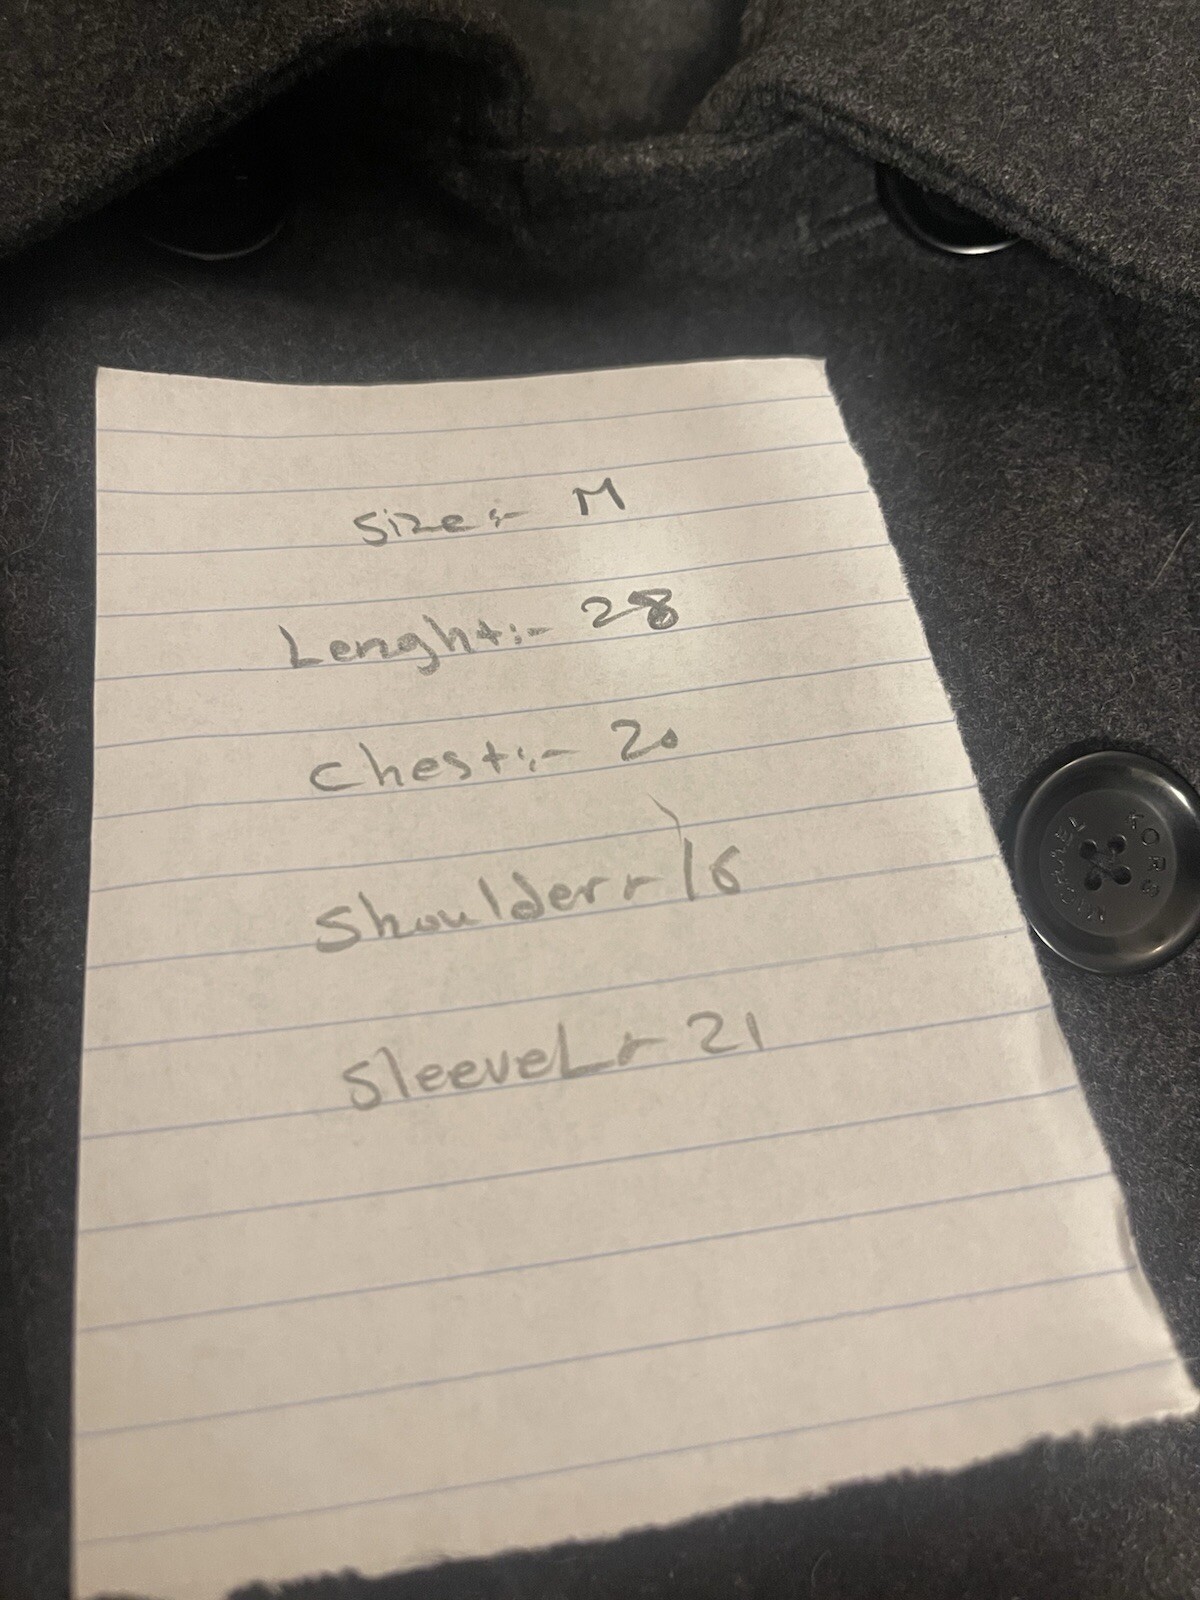 Size:- M
Lenght:- 28
Chest:- 20
Shoulder - 16
SleeveL - 21
MICHAEL KORS